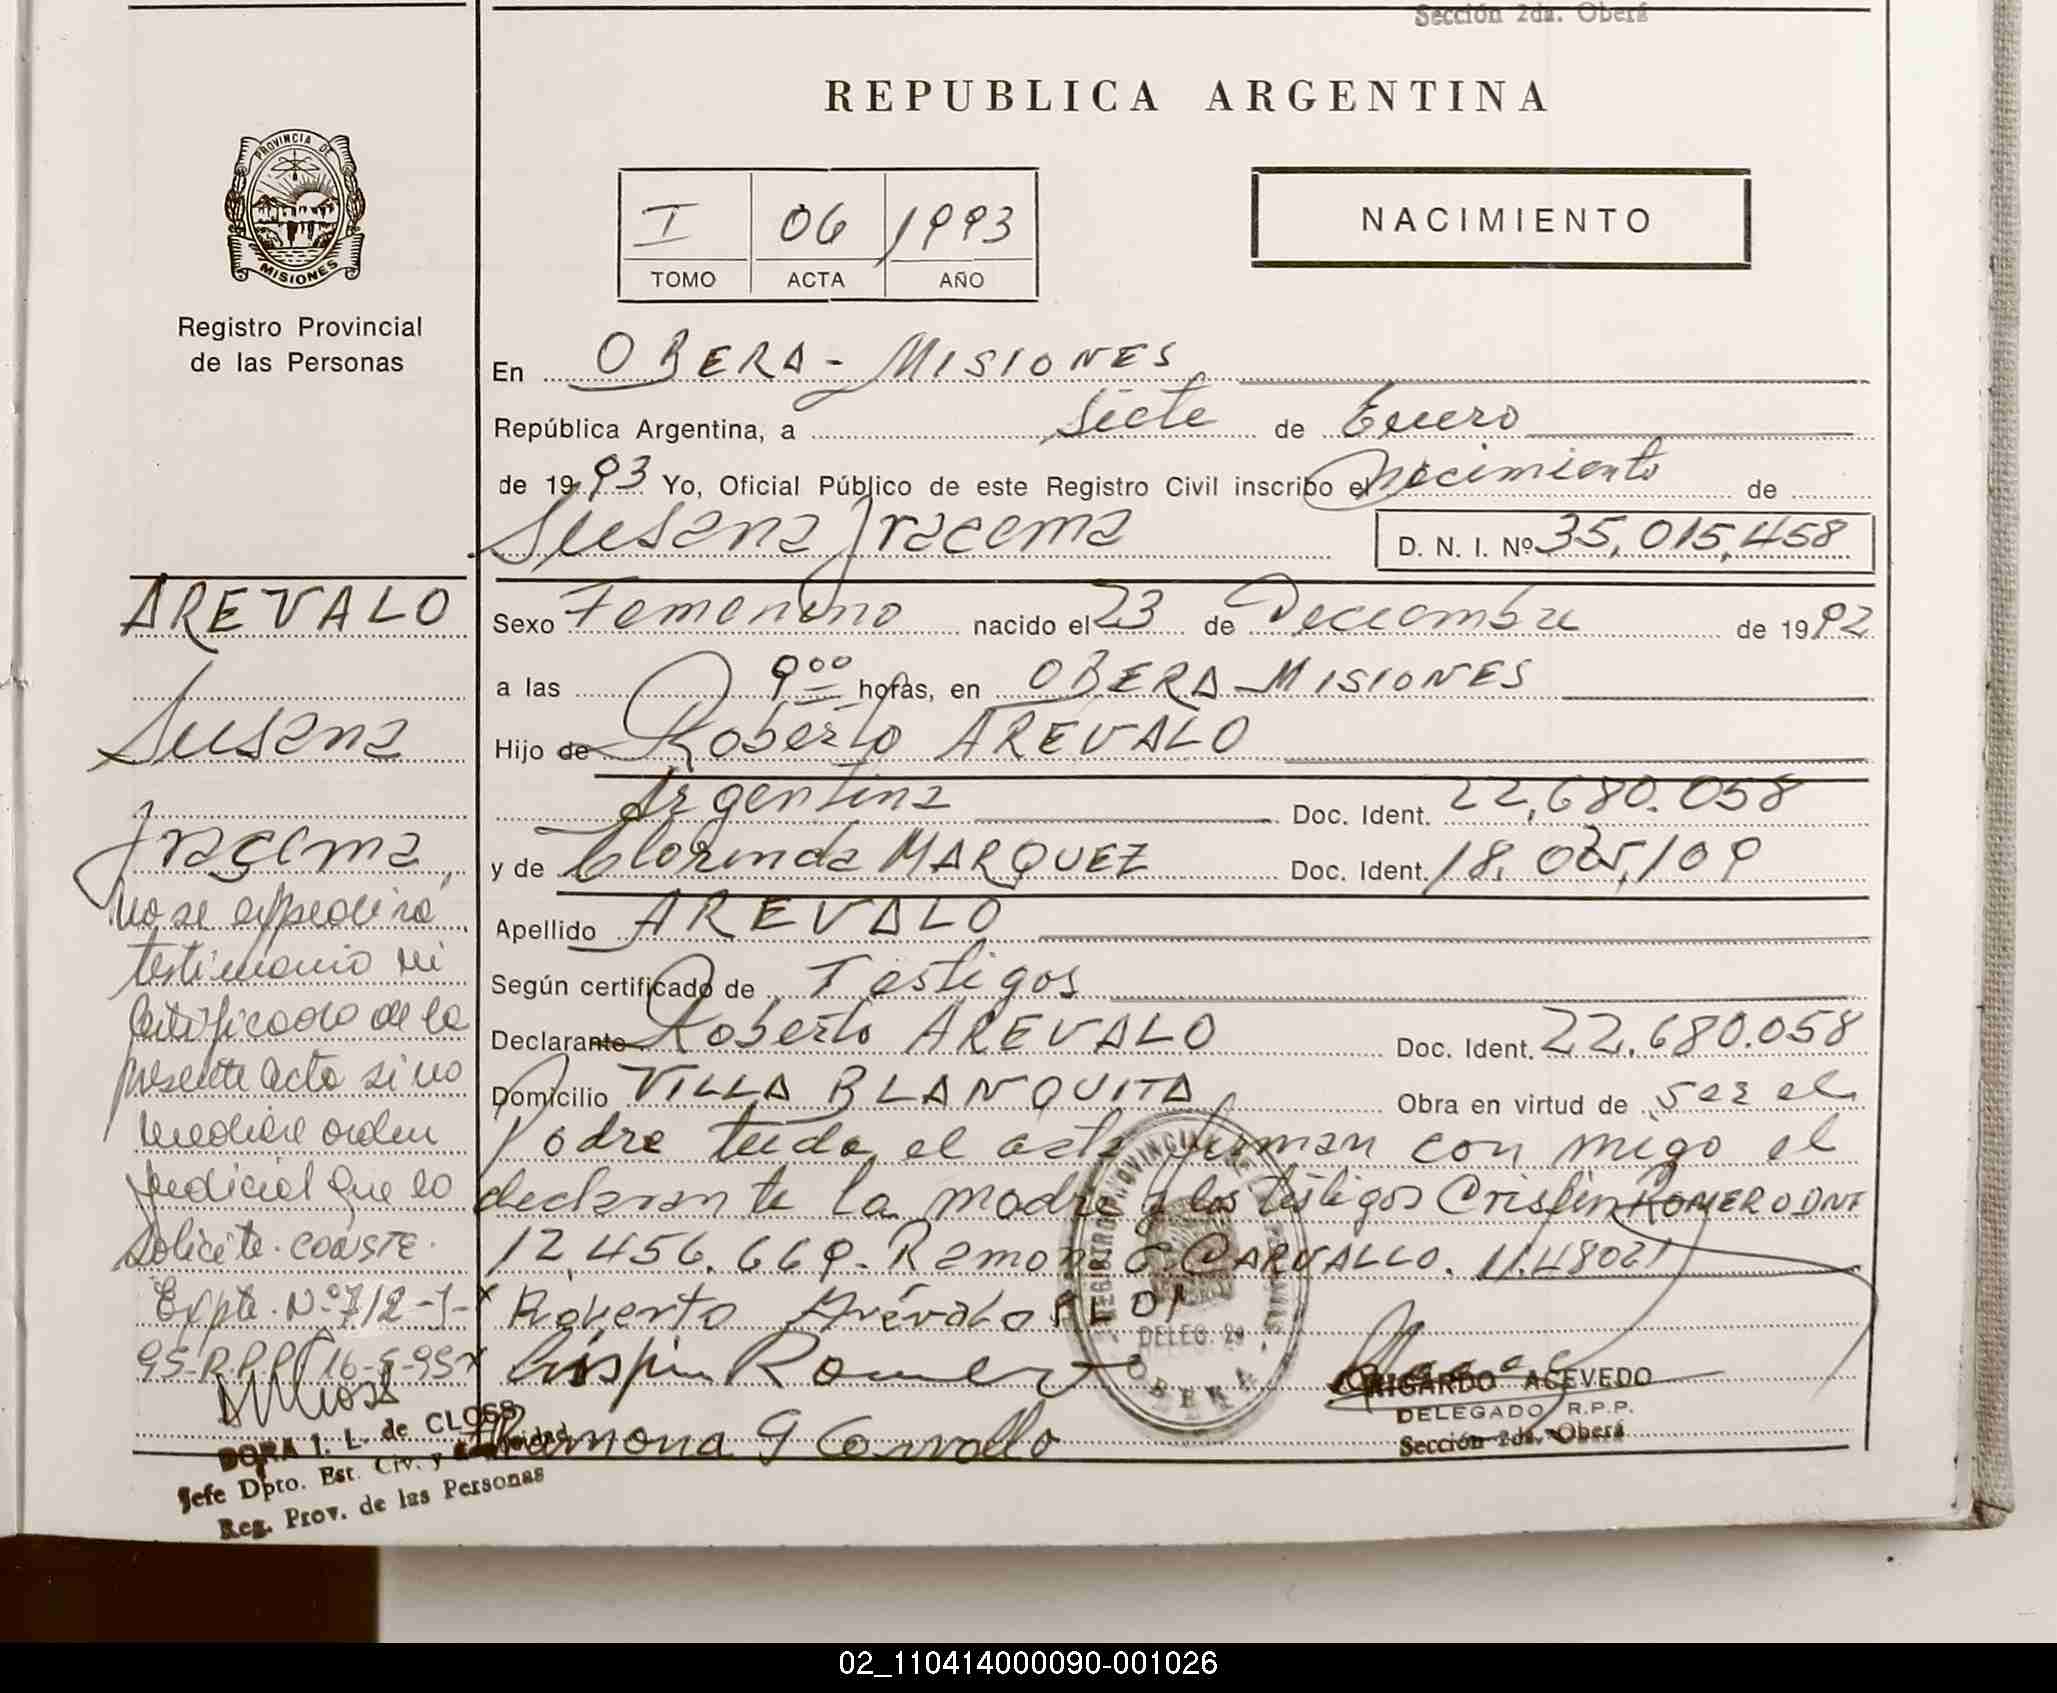 Sección 2da. Oberá
REPUBLICA ARGENTINA
PROVINCIA DE
MISIONES
Registro Provincial
de las Personas
I 06 1993
TOMO ACTA AÑO
NACIMIENTO
En OBERA - MISIONES
República Argentina, a siete de Enero
de 1993 Yo, Oficial Público de este Registro Civil inscribo el Nacimiento de
Susana Iracema D. N. I. Nº 35,015,458
Sexo Femenino nacido el 23 de Deciembre de 1992
a las 9 00 horas, en OBERA MISIONES
Hijo de Roberto AREVALO
Argentina Doc. Ident. 22,680.058
y de Clorinda MARQUEZ Doc. Ident. 18. 109
Apellido AREVALO
Según certificado de Testigos
Declarante Roberto AREVALO Doc. Ident. 22.680.058
Domicilio VILLA BLANQUITA Obra en virtud de ser el
Padre leida el acta firman con migo el
declarante la madre y los testigos Crispin ROMERO DNI
12,456.669. Ramona G. CARVALLO. 11.48021
Roberto Arévalo
Crispin Romero
Ramona G Carvallo
REGISTRO PROVINCIAL DE LAS PERSONAS
DELEG. 2a
OBERA
RICARDO ACEVEDO
DELEGADO R.P.P.
Sección 2da. Oberá
AREVALO
Susana
Iracema
No se expedirá
testimonio ni
certificado de la
presente acta si no
mediare orden
Judicial que lo
solicite. CONSTE.
Expte. Nº 712-J-
95-R.P.P. 16-5-95
DORA I. L. de CLOSS
Jefe Dpto. Est. Civ. y
Reg. Prov. de las Personas
02_110414000090-001026